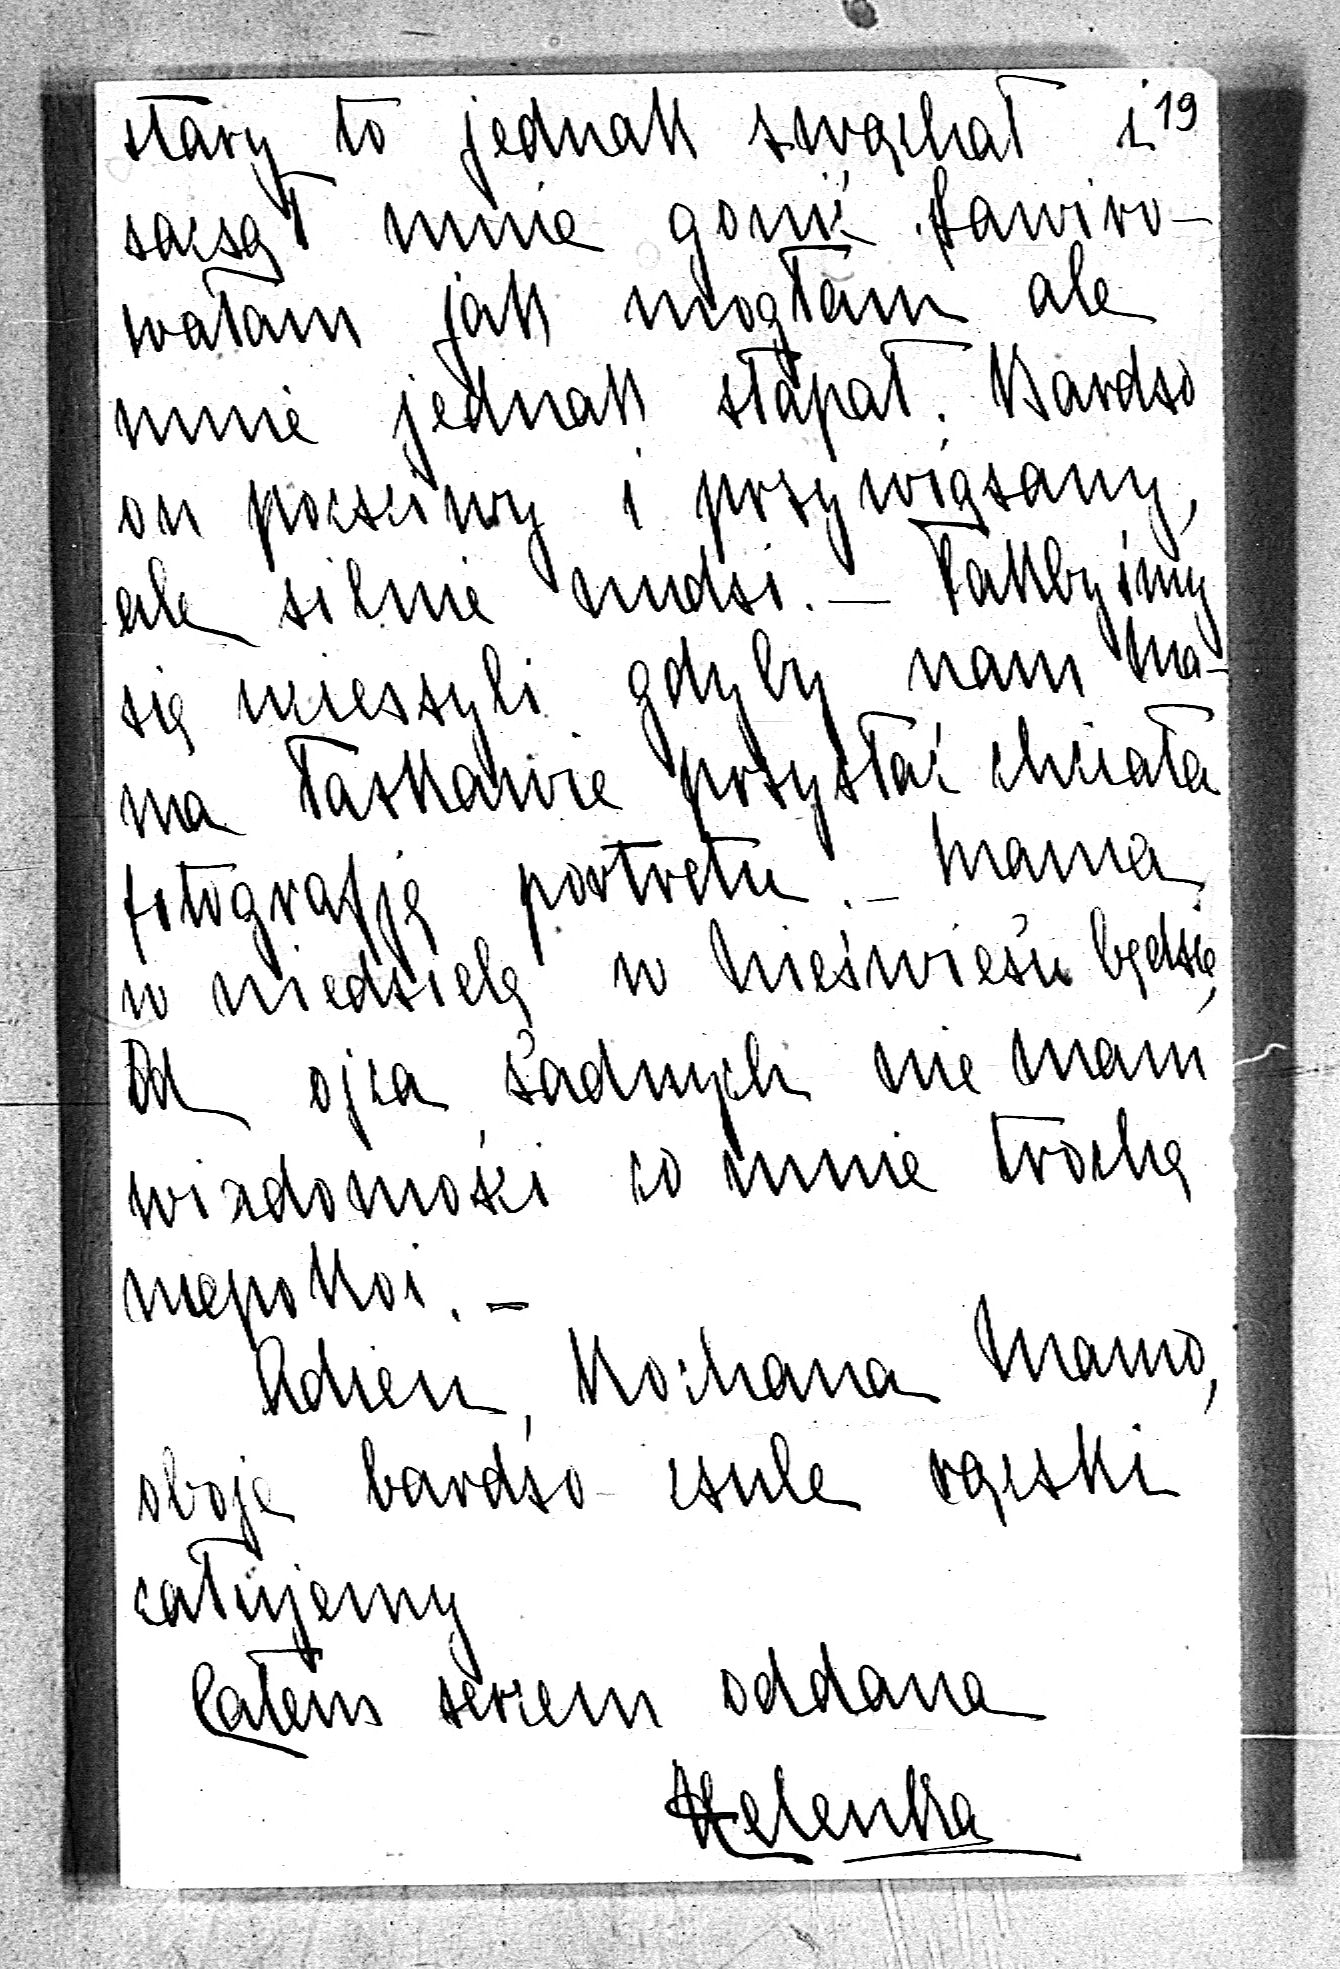 stary to jednak zwąchał i 19
zaczął mnie gonić. Lawiro-
wałam jak mogłam ale
mnie jednak złapał. Bardzo
on poczciwy i przywiązany,
ale silnie nudzi. — Takbyśmy
się ucieszyli gdyby nam Ma-
ma łaskawie przysłać chciała
fotografję portretu. — Mama
w niedzielę w Nieświeżu będzie,
Od ojca żadnych nie mam
wiadomości co mnie trochę
niepokoi. —
Adieu, Kochana Mamo,
oboje bardzo czule rączki
całujemy
Całem sercem oddana
Helenka